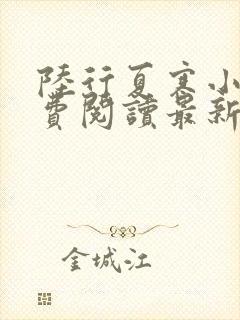 陸行夏寒小
費閱讀最新
金城江